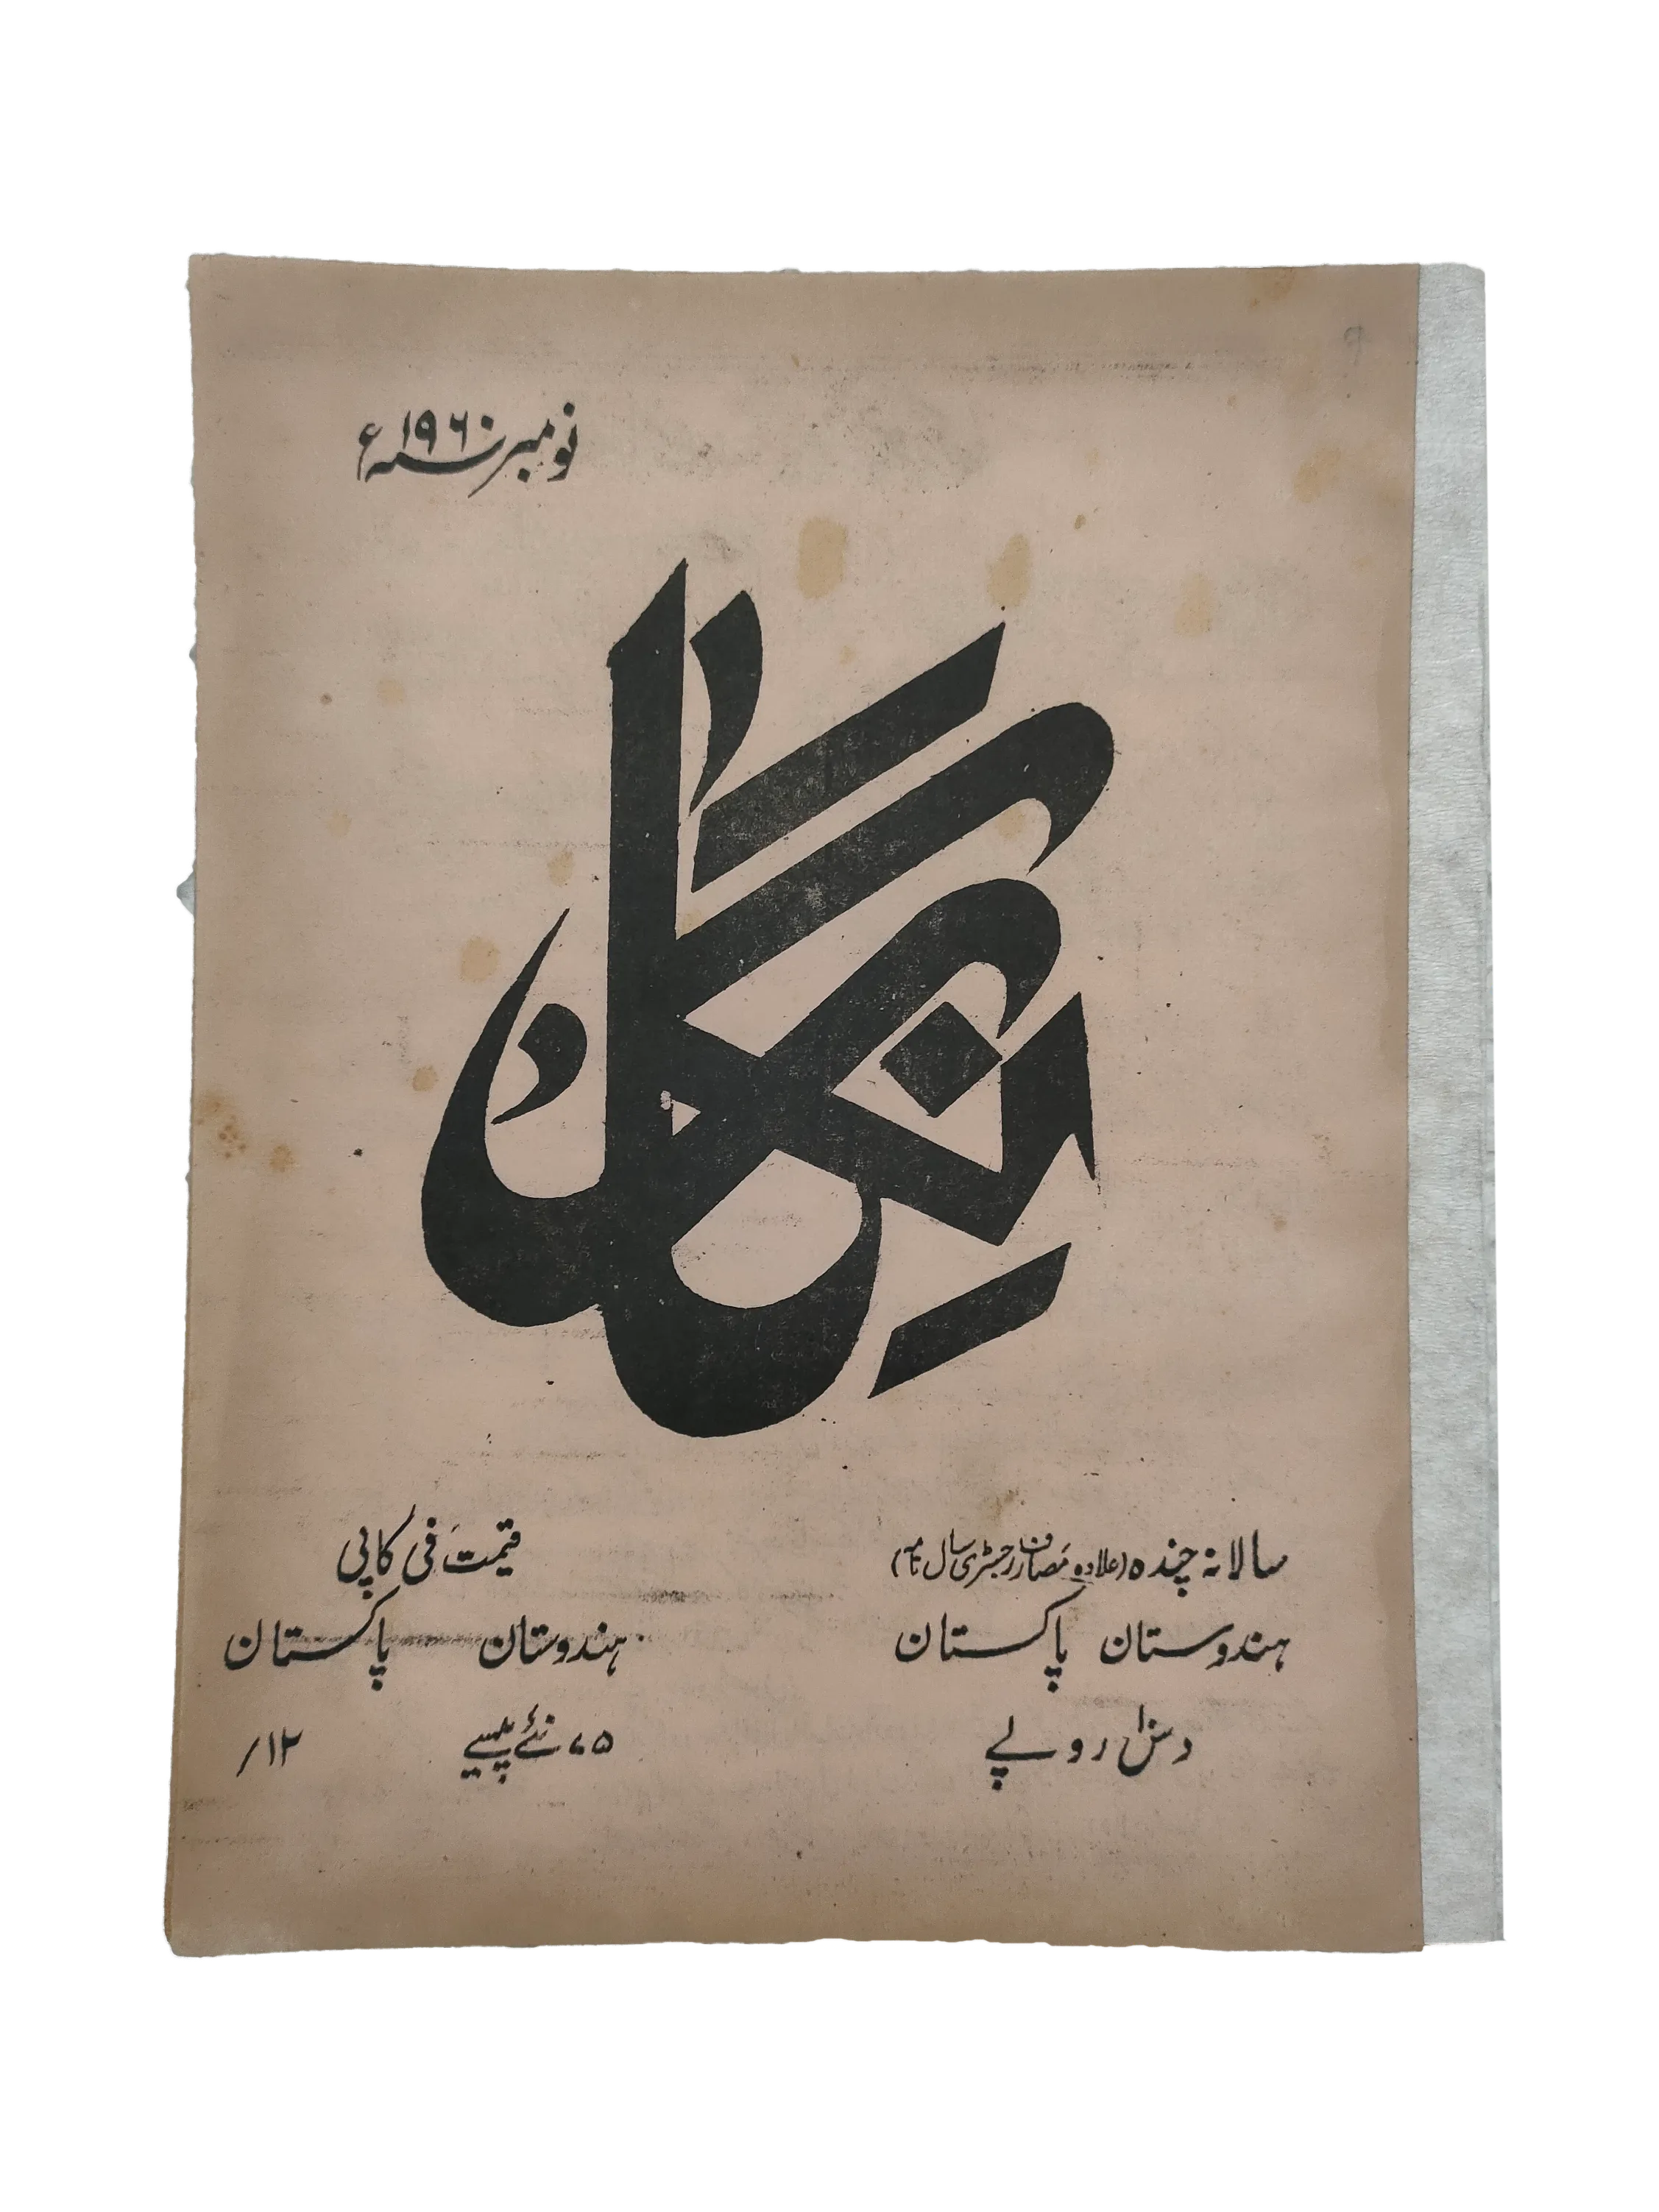 نومبر ۱۹۶۰ء
نگار
سالانہ چندہ (علاوہ مصارف رجسٹری سال نامہ)
ہندوستان پاکستان
دس روپے
قیمت فی کاپی
ہندوستان پاکستان
۷۵ نئے پیسے ۱۲/